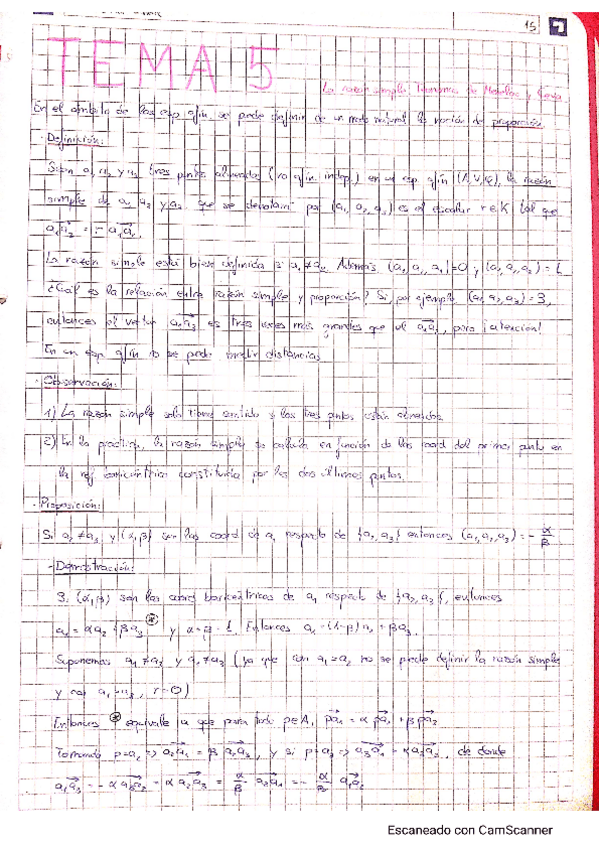 15
TEMA 5
La razón simple. Teoremas de Menelao y Ceva
En el ámbito de los esp afín se puede definir de un modo natural la noción de proporción.
· Definición:
Sean a₁, a₂ y a₃ tres puntos alineados (no afín. indep.) en un esp afín (A,V,φ), la razón
simple de a₁, a₂ y a₃ que se denotará por (a₁, a₂, a₃) es el escalar r∈K tal que
a₁a₃ = r a₁a₂.
La razón simple está bien definida si a₁ ≠ a₂. Además (a₁ a₂ a₁)=0 y (a₁ a₂ a₂) = 1
¿Cuál es la relación entre razón simple y proporción? Si, por ejemplo, (a₁, a₂, a₃) = 3,
entonces el vector a₁a₃ es tres veces más grande que el a₁a₂, pero ¡atención!
En un esp. afín no se puede medir distancias
· Observación:
1) La razón simple solo tiene sentido si los tres puntos están alineados.
2) En la práctica, la razón simple se calcula en función de las coord del primer punto en
la ref baricéntrica constituida por los dos últimos puntos.
· Proposición:
Si a₂ ≠ a₃ y (α,β) son las coord de a₁ respecto de {a₂, a₃} entonces (a₁, a₂, a₃) = - α/β
- Demostración:
Si (α,β) son las coord baricéntricas de a₁ respecto de {a₂, a₃}, entonces
a₁ = αa₂ + βa₃ y α+β = 1. Entonces a₁ = (1-β)a₂ + βa₃.
Suponemos a₁ ≠ a₂ y a₁ ≠ a₃ (ya que con a₁ = a₂ no se puede definir la razón simple
y con a₁ = a₃, r = 0)
Entonces ⊛ equivale a que para todo p∈A, pa₁ = α pa₂ + β pa₃
Tomando p=a₂ ⇒ a₂a₁ = β a₂a₃, y si p=a₃ ⇒ a₃a₁ = α a₃a₂, de donde
a₁a₃ = -α a₃a₂ = α a₂a₃ = α/β a₂a₁ = - α/β a₁a₂
Escaneado con CamScanner